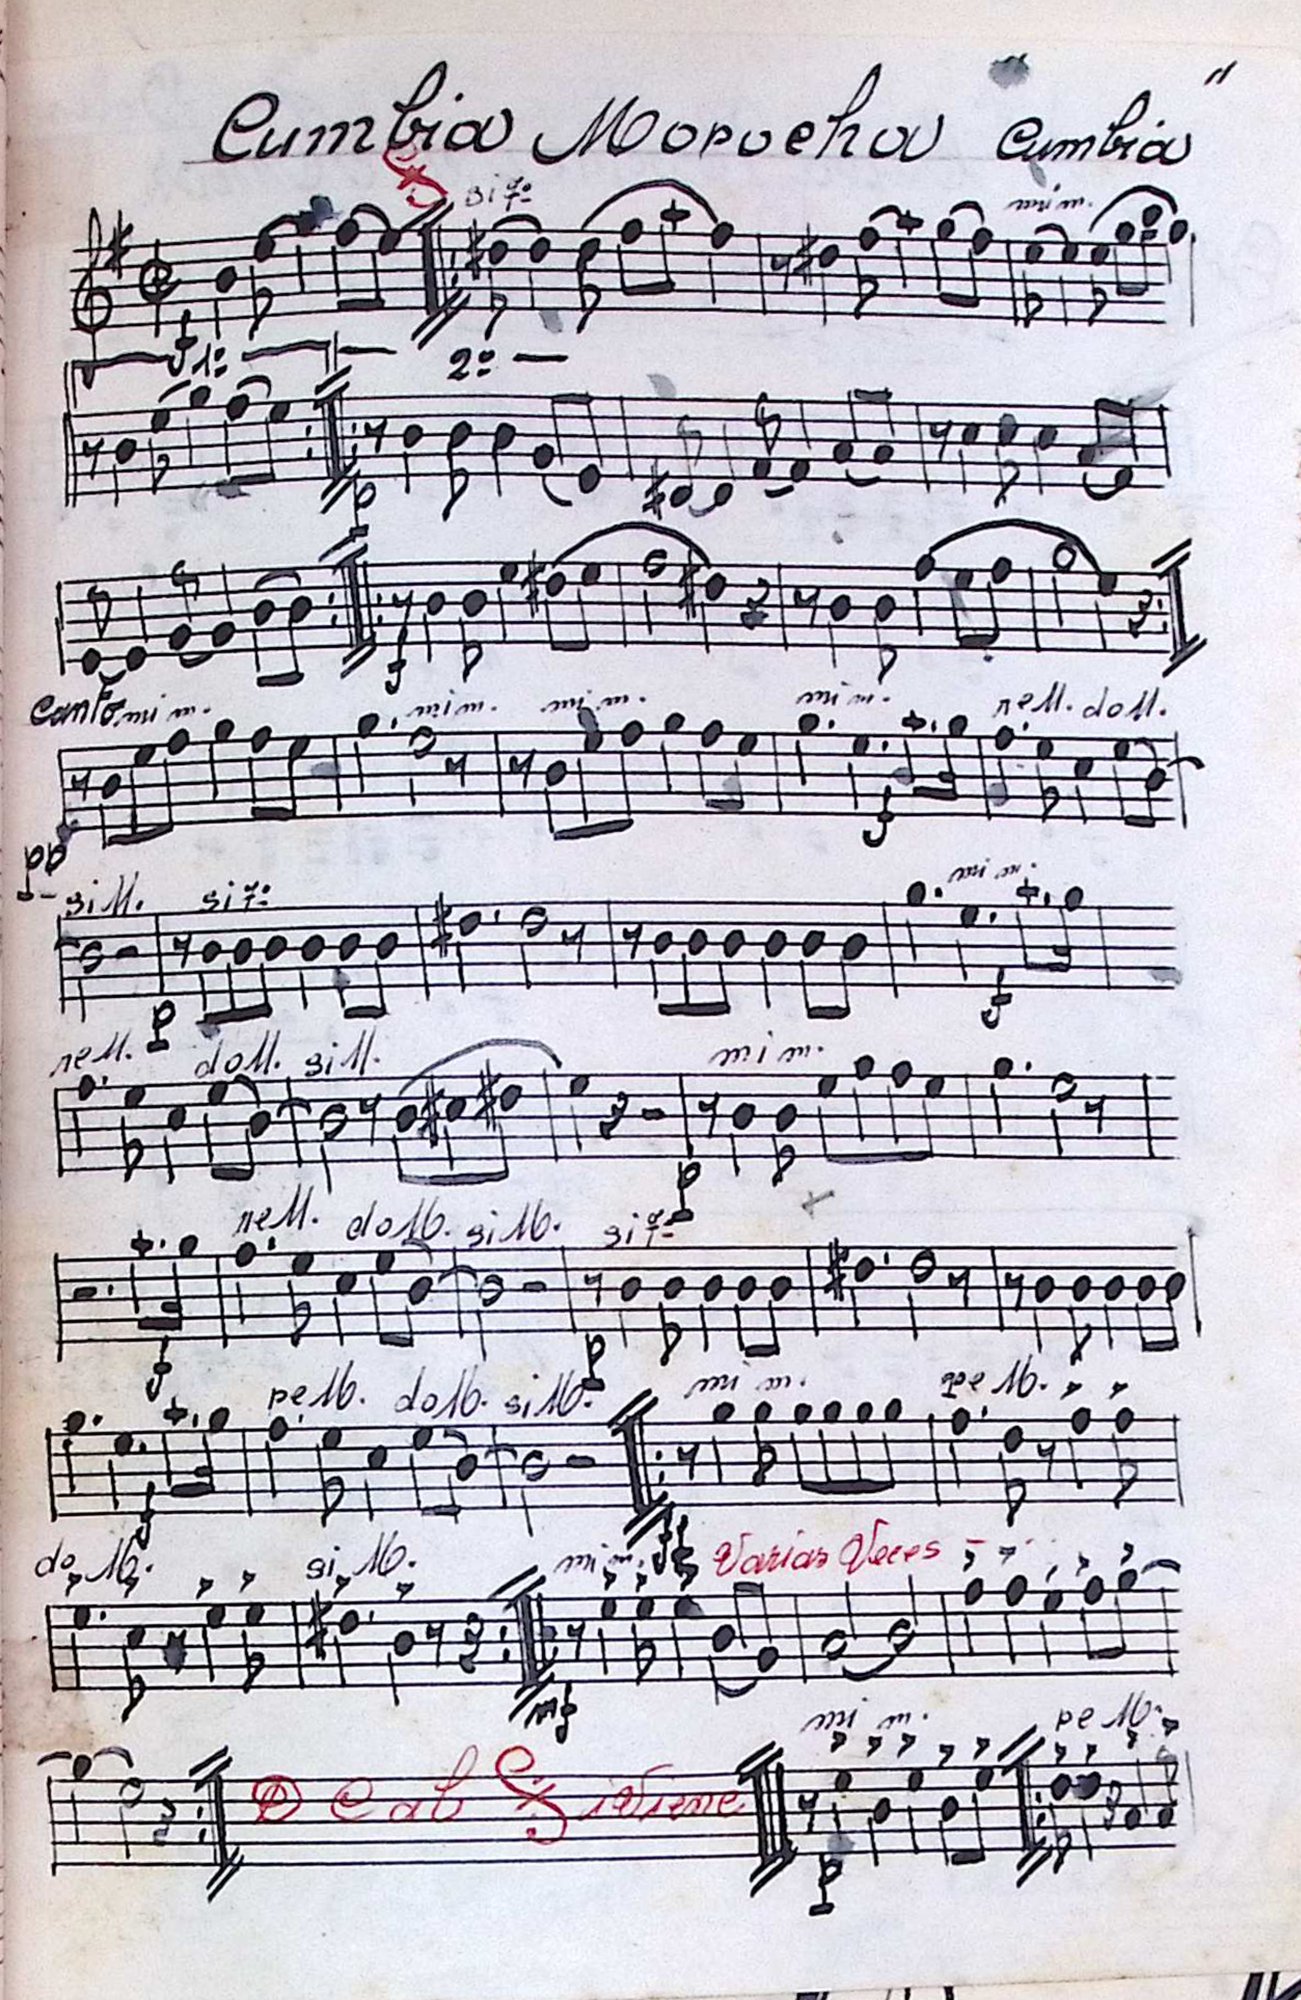 Cumbia Morocha Cumbia "
si7º mim.
f 1º 2º
p
f
Canto mim. mim. mim. mim. reM. doM.
pp f
siM. si7º mim.
p f
reM. doM. siM. mim.
p
reM. doM. siM. si7º
f p
reM. doM. siM. mim. reM.
f ff
doM. siM. mim. Varias Veces
mf
D C al Si Viene mim. reM.
p